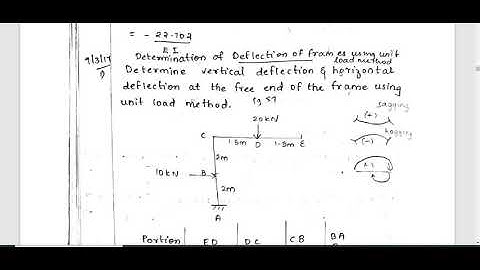 = - 22.702
E.I.
9/3/17 Determination of Deflection of frames using unit
load method
Determine vertical deflection & horizontal
deflection at the free end of the frame using
unit load method.
sagging
(+)
hogging
(-)
20kN
C
1.5m D 1.5m E
2m
10kN B
2m
A
(+)
Portion ED DC CB BA